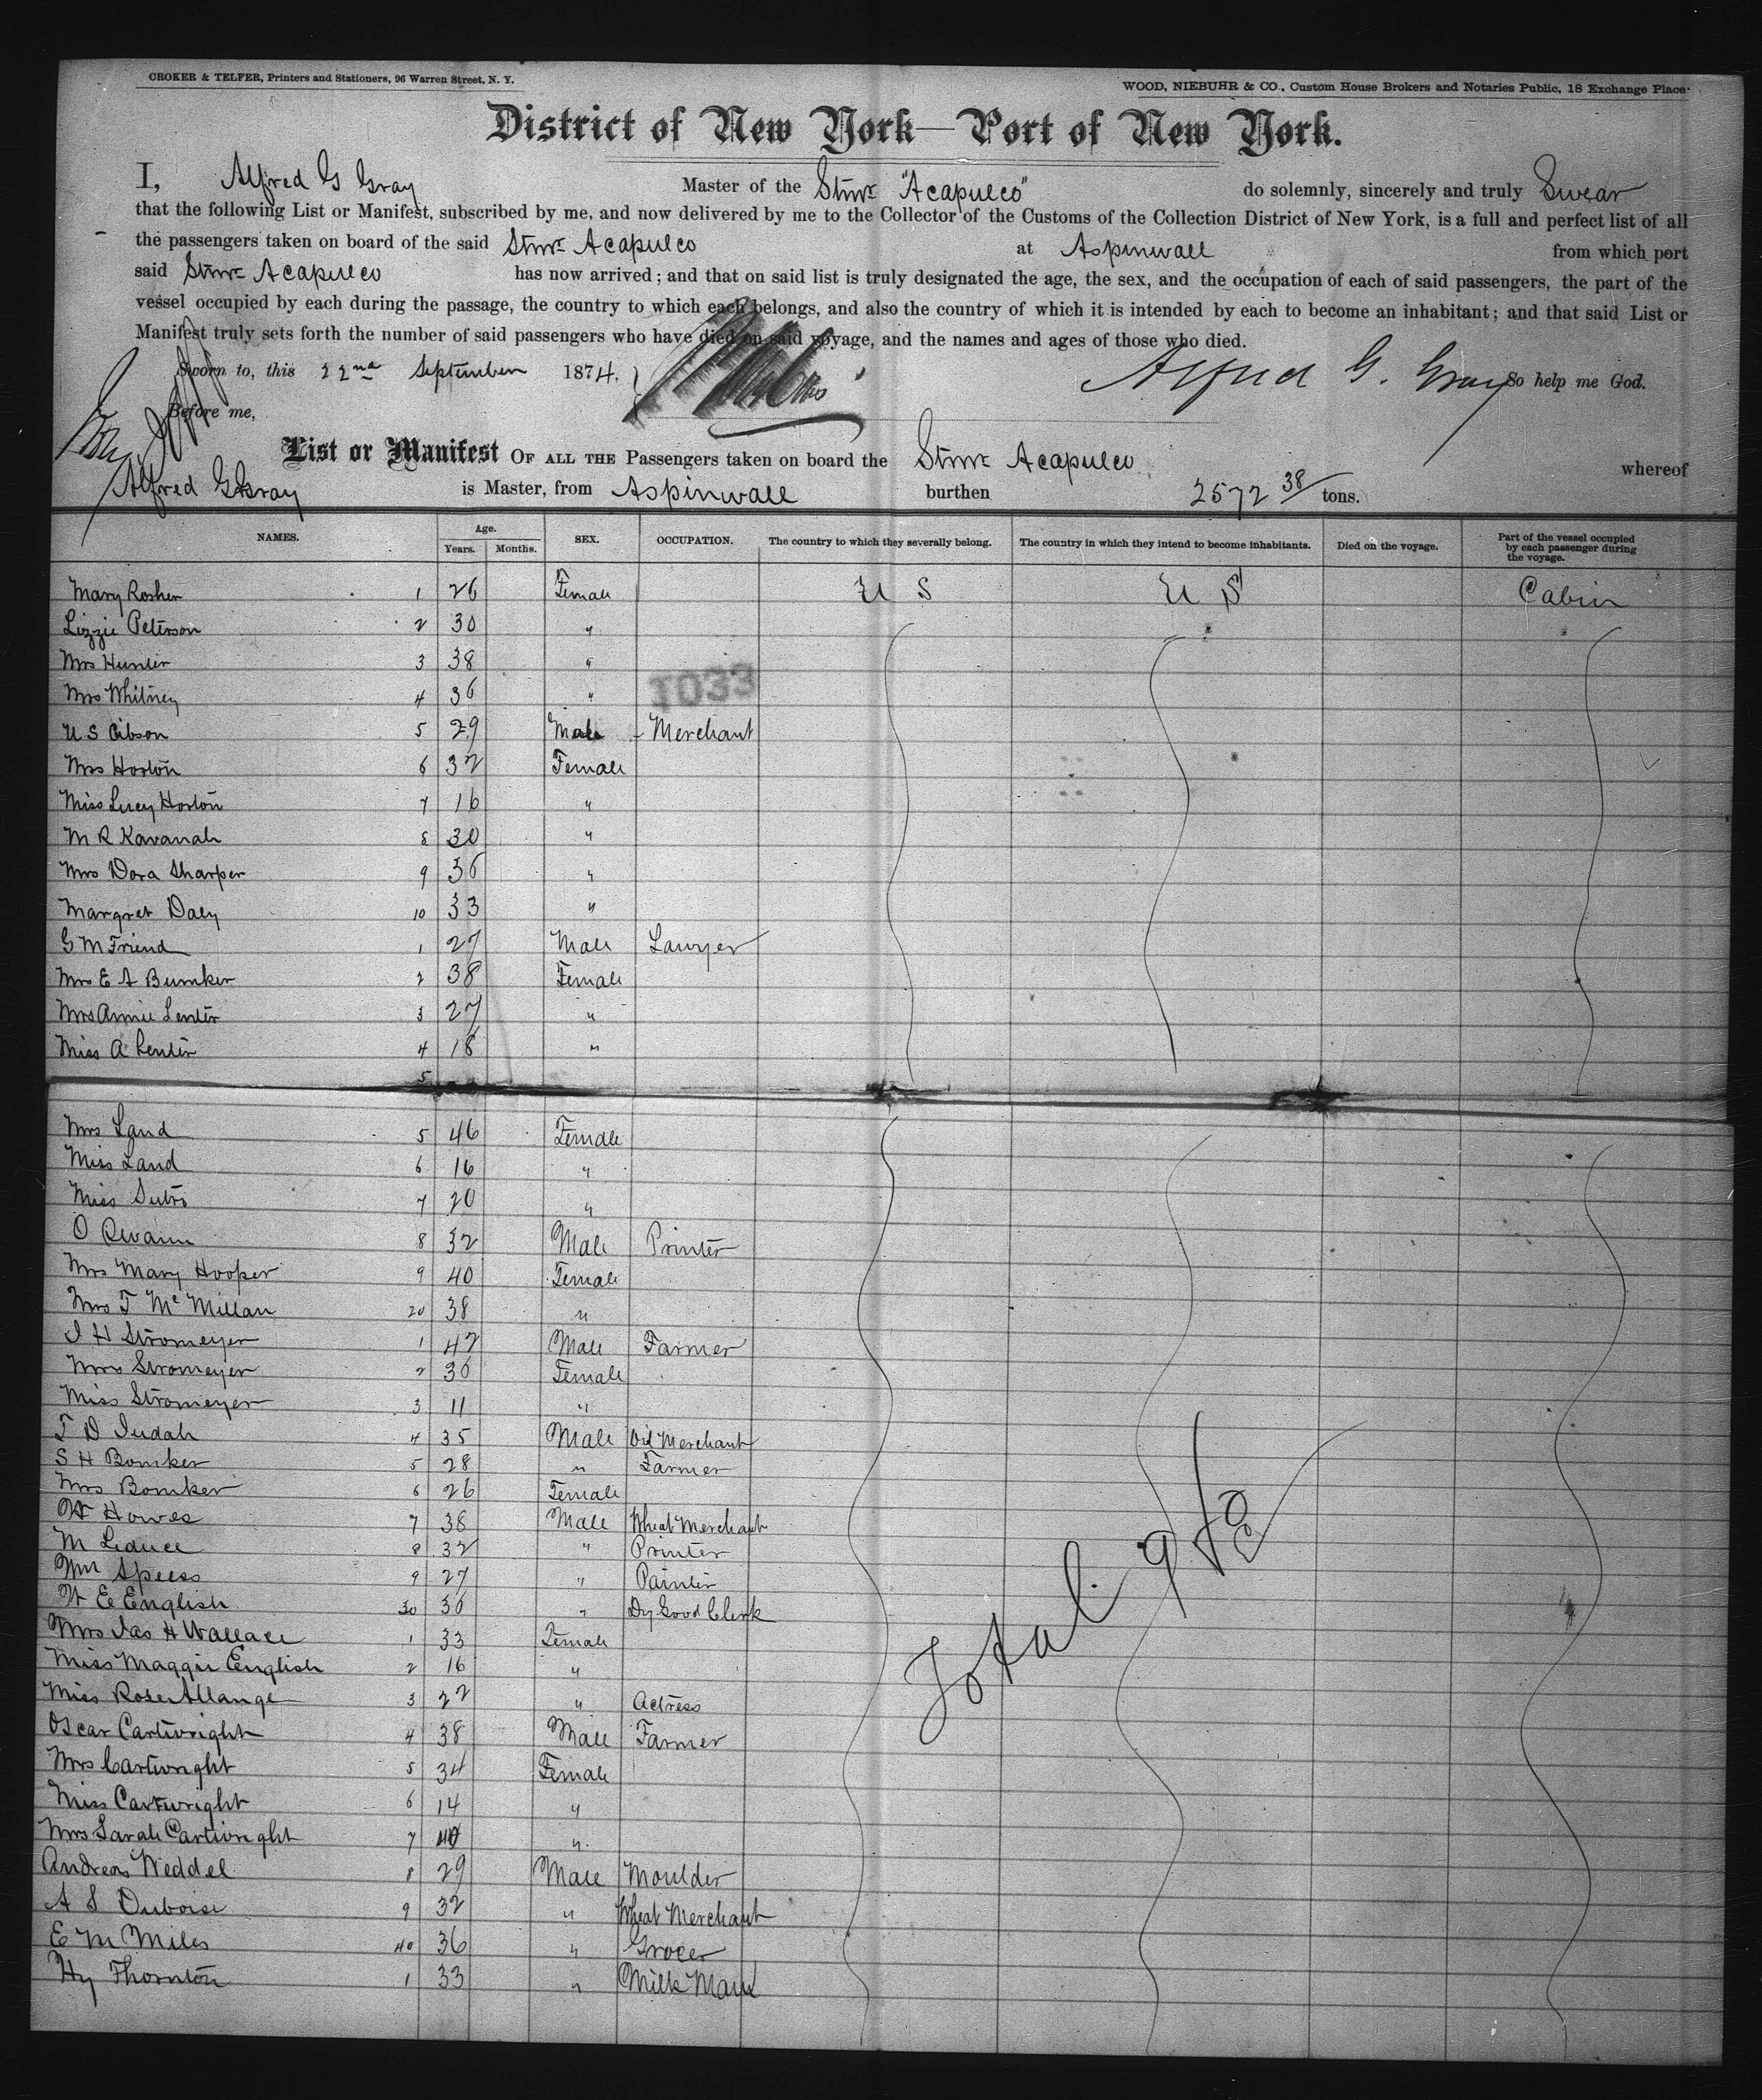 CROKER & TELFER, Printers and Stationers, 96 Warren Street, N. Y.
WOOD, NIEBUHR & CO., Custom House Brokers and Notaries Public, 18 Exchange Place.
District of New York—Port of New York.
I, Alfred G Gray Master of the Stmr "Acapulco" do solemnly, sincerely and truly Swear
that the following List or Manifest, subscribed by me, and now delivered by me to the Collector of the Customs of the Collection District of New York, is a full and perfect list of all
the passengers taken on board of the said Stmr Acapulco at Aspinwall from which port
said Stmr Acapulco has now arrived; and that on said list is truly designated the age, the sex, and the occupation of each of said passengers, the part of the
vessel occupied by each during the passage, the country to which each belongs, and also the country of which it is intended by each to become an inhabitant; and that said List or
Manifest truly sets forth the number of said passengers who have died on said voyage, and the names and ages of those who died.
Sworn to, this 22nd September 1874. Alfred G. Gray So help me God.
Before me,
List or Manifest OF ALL THE Passengers taken on board the Stmr Acapulco whereof
Alfred G Gray is Master, from Aspinwall burthen 2572 38/ tons.
NAMES. Age. Years. Months. SEX. OCCUPATION. The country to which they severally belong. The country in which they intend to become inhabitants. Died on the voyage. Part of the vessel occupied by each passenger during the voyage.
Mary Rosher 1 26 Female U S U S Cabin
Lizzie Peterson 2 30 "
Mrs Hunter 3 38 "
Mrs Whitney 4 36 "
1033
U S Gibson 5 29 Male Merchant
Mrs Horton 6 32 Female
Miss Lucy Horton 7 16 "
M R Kavanah 8 30 "
Mrs Dora Sharper 9 36 "
Margret Daly 10 33 "
G M Friend 1 27 Male Lawyer
Mrs E A Bumker 2 38 Female
Mrs Annie Lenter 3 27 "
Miss A Lenter 4 18 "
5
Mrs Land 5 46 Female
Miss Land 6 16 "
Miss Sutro 7 20 "
O 8 32 Male Printer
Mrs Mary Hooper 9 40 Female
Mrs T McMillan 20 38 "
I H Stromeyer 1 42 Male Farmer
Mrs Stromeyer 2 36 Female
Miss Stromeyer 3 11 "
T D Judah 4 35 Male Oil Merchant
S H Bomker 5 28 " Farmer
Mrs Bomker 6 26 Female
W Howes 7 38 Male Wheat Merchant
M Leduce 8 32 " Printer
Wm Speess 9 27 " Painter
W E English 30 36 " Dy Good Clerk
Mrs Jas H Wallace 1 33 Female
Miss Maggie English 2 16 "
Miss Rose 3 22 " Actress
Oscar Cartwright 4 38 Male Farmer
Mrs Cartwright 5 34 Female
Miss Cartwright 6 14 "
Mrs Sarah Cartwright 7 40 "
Andreas Weddel 8 29 Male Moulder
A S Duboise 9 32 " Wheat Merchant
E M Miles 40 36 " Grocer
Hy Thornton 1 33 " Milk Man
Total